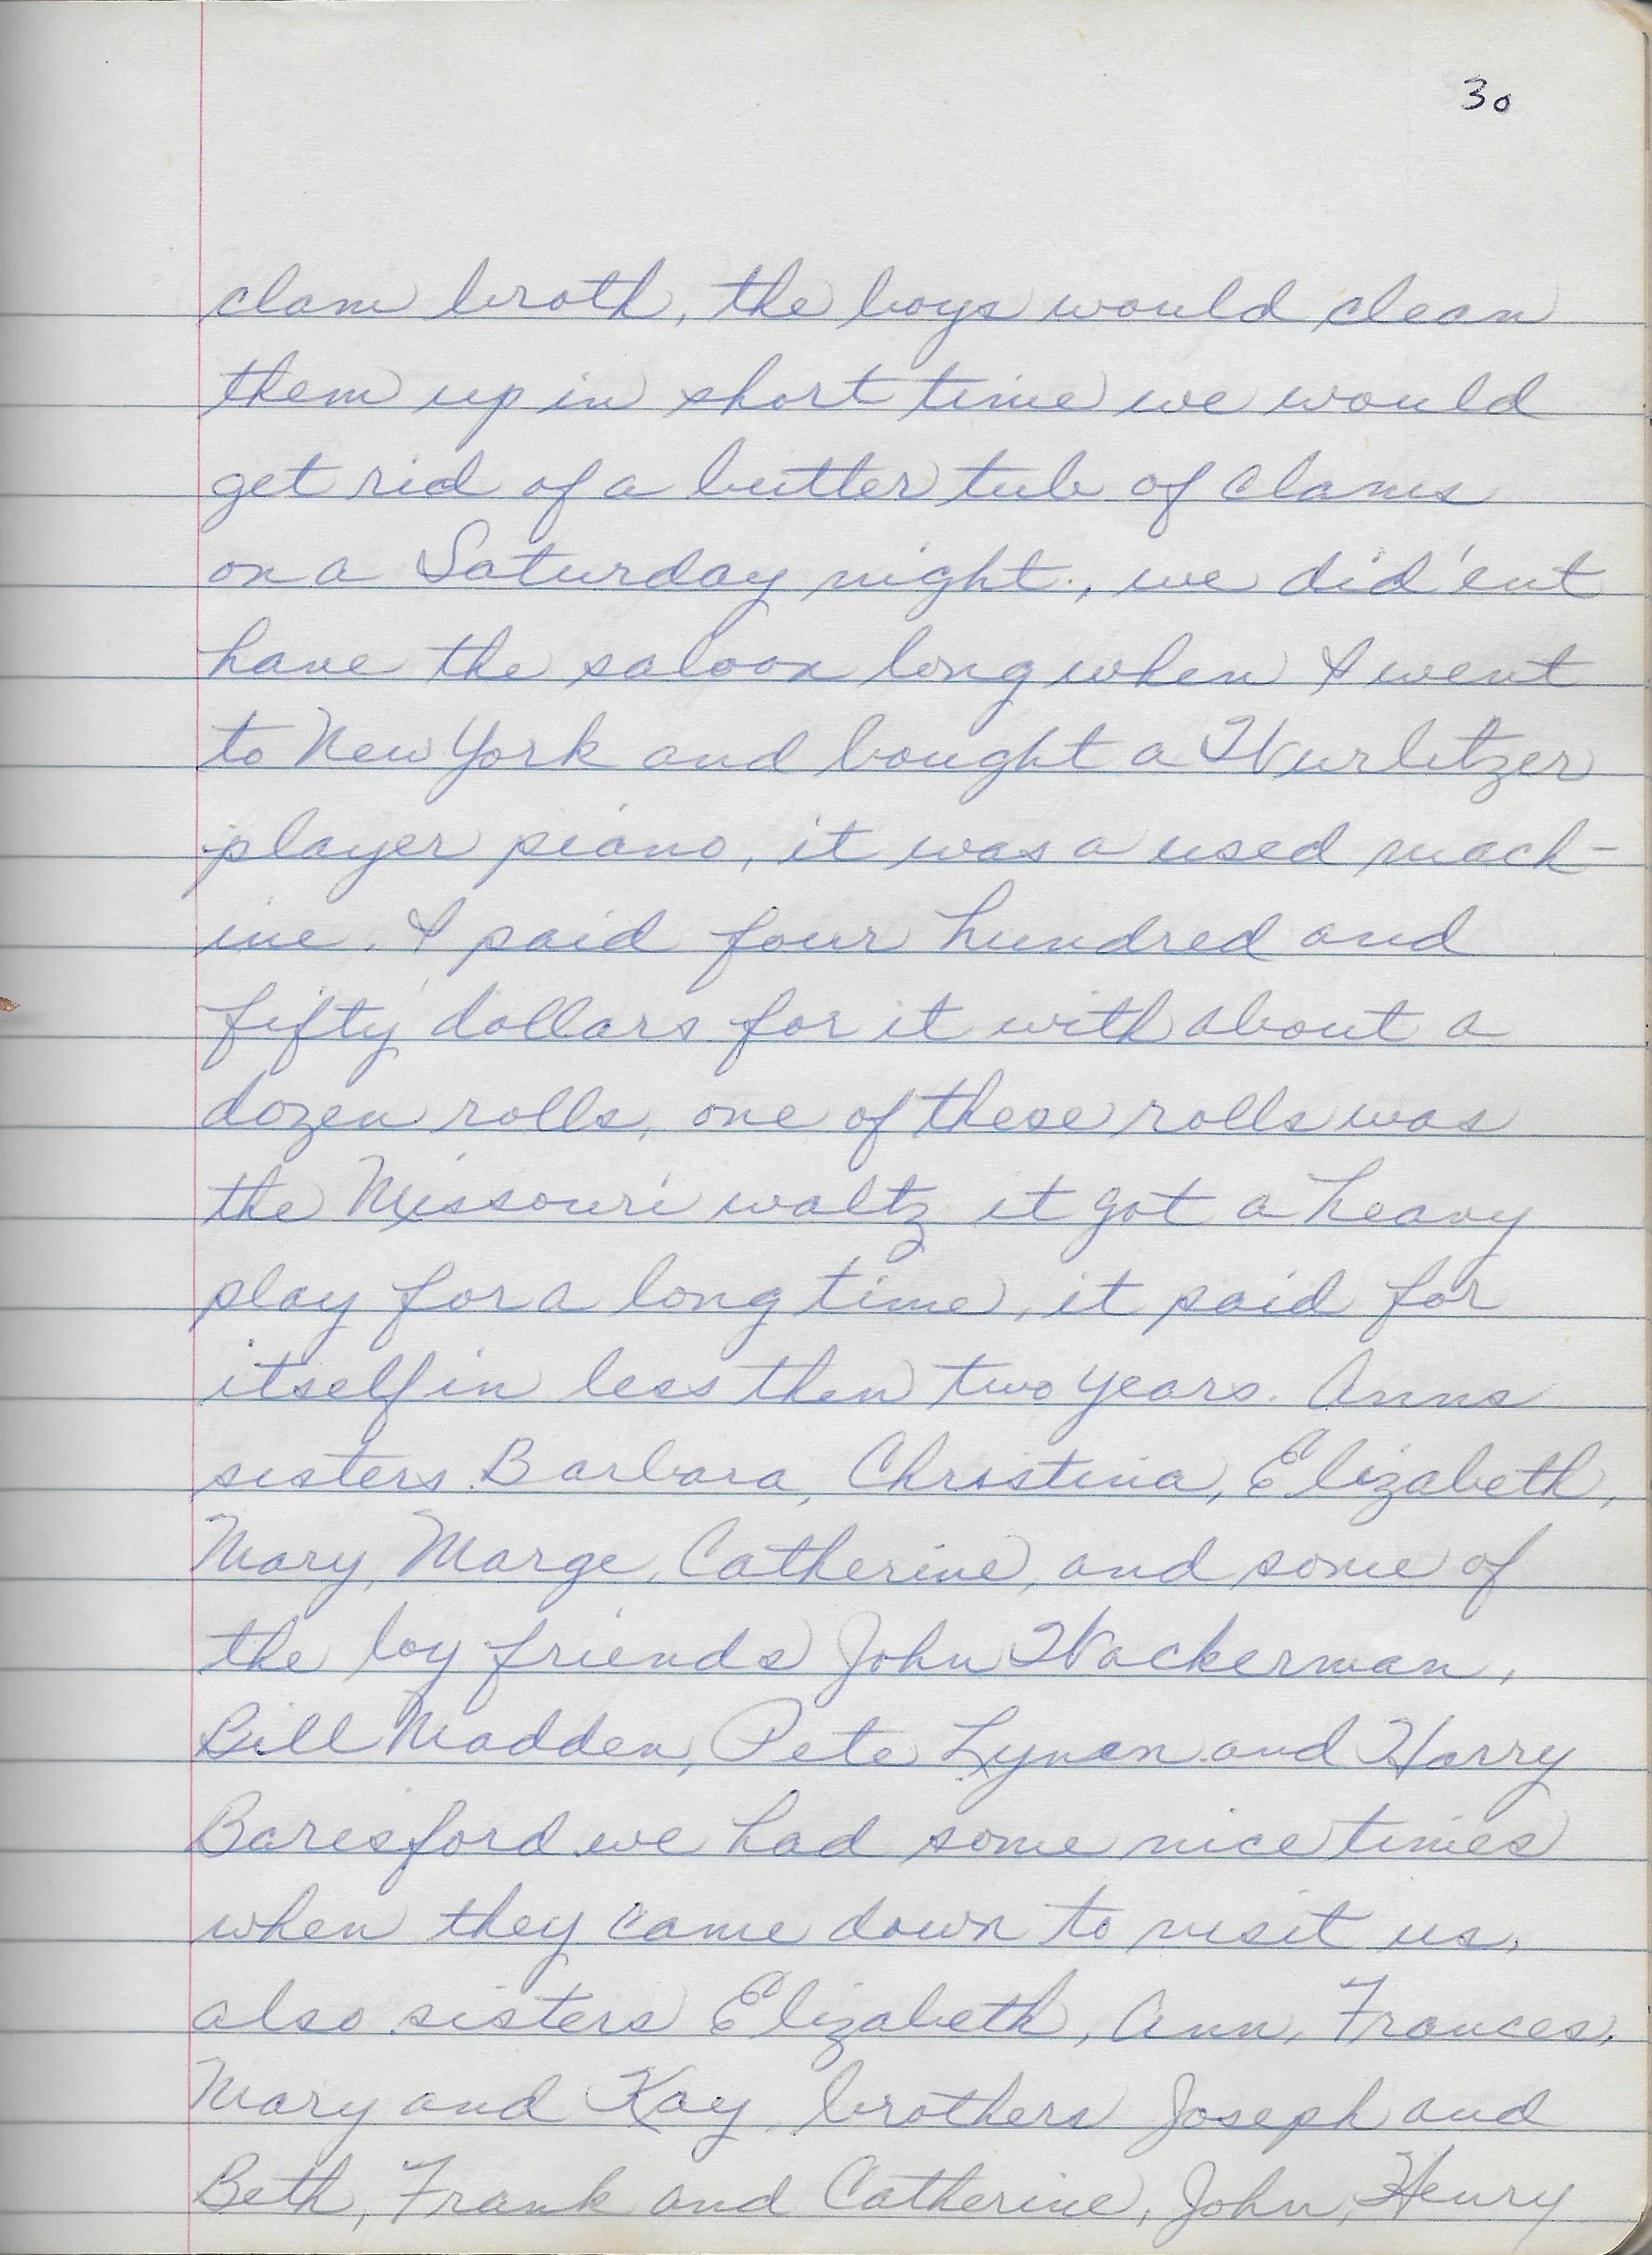 30
clam broth, the boys would clean
them up in short time we would
get rid of a butter tub of clams
on a Saturday night., we did'ent
have the saloon long when I went
to New York and bought a Wurlitzer
player piano, it was a used mach-
ine. I paid four hundred and
fifty dollars for it with about a
dozen rolls, one of these rolls was
the Missouri waltz it got a heavy
play for a long time, it paid for
itself in less then two years. Anns
sisters Barbara, Christina, Elizabeth,
Mary, Marge, Catherine, and some of
the boy friends John Wackerman,
Bill Madden, Pete Lynan and Harry
Baresford we had some nice times
when they came down to visit us,
also sisters Elizabeth, Ann, Frances,
Mary and Kay, brothers Joseph and
Beth, Frank and Catherine, John, Henry